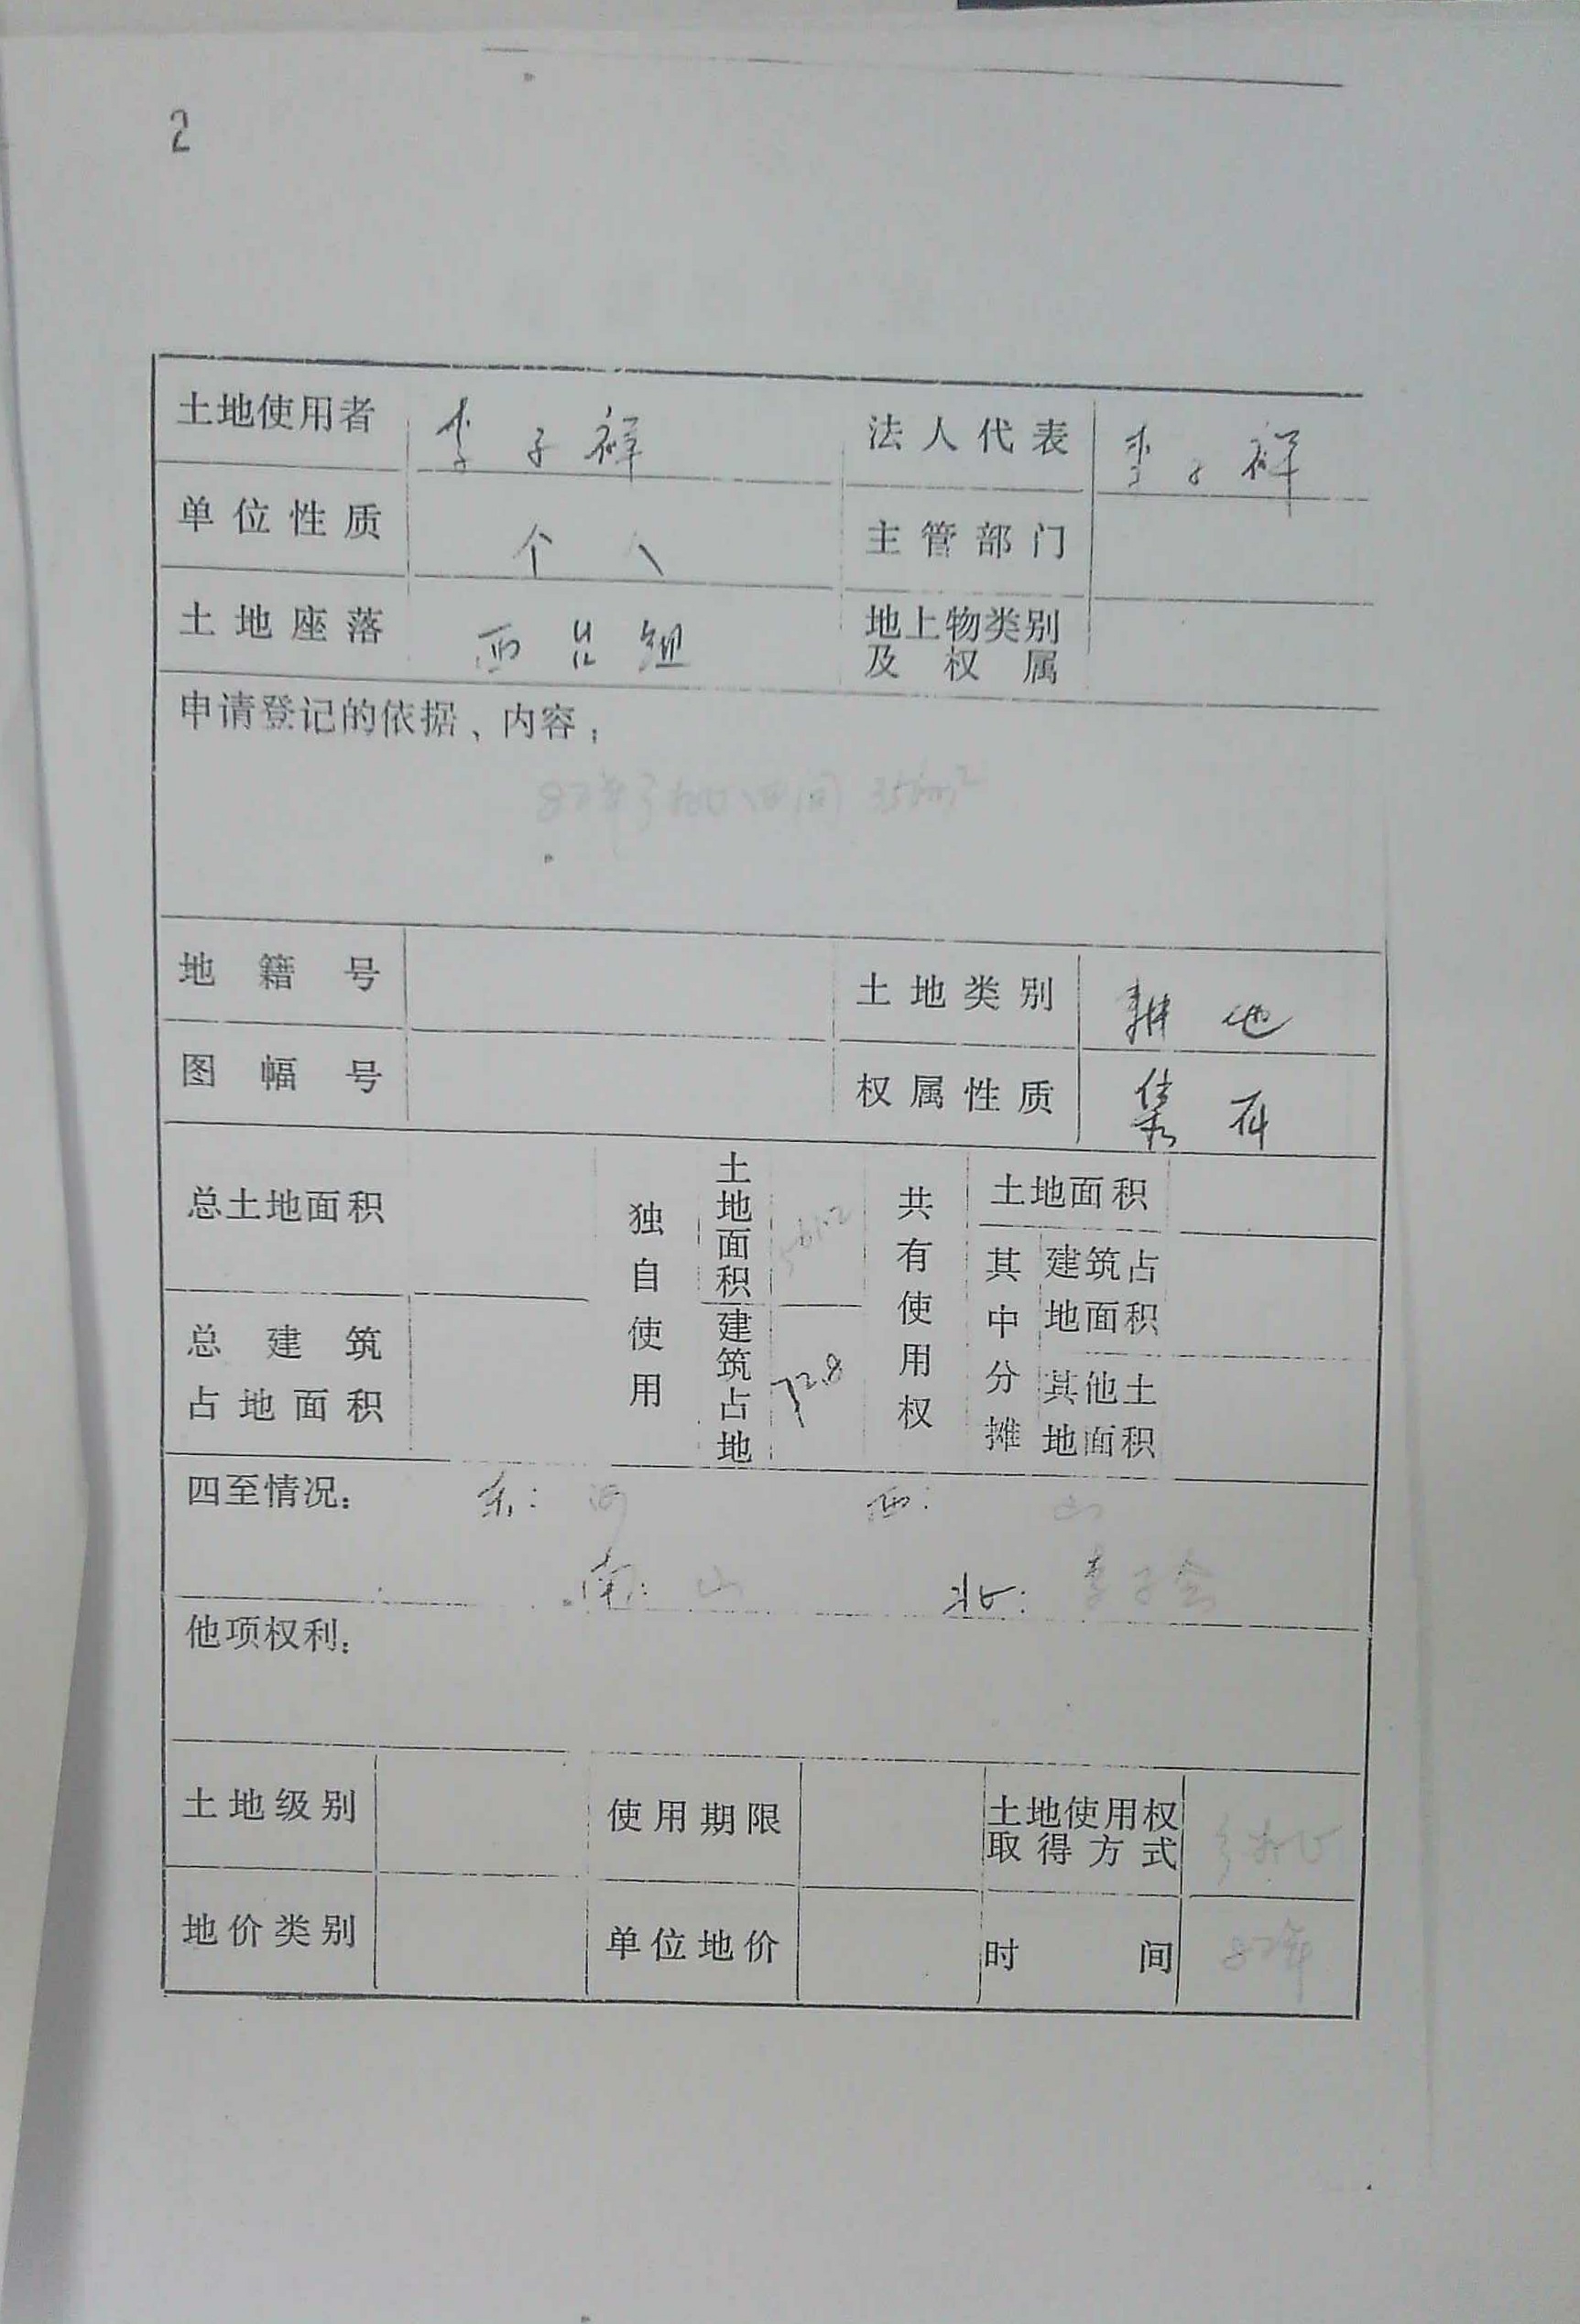 2
土地使用者 李子祥 法人代表 李子祥
单位性质 个人 主管部门
土地座落 西 组 地上物类别及权属
申请登记的依据、内容:
87年乡批 四间 35 m²
地籍号 土地类别 耕地
图幅号 权属性质 集体
总土地面积 独自使用 土地面积 共有使用权 土地面积
总建筑占地面积 建筑占地 72.8 其中分摊 建筑占地面积
其他土地面积
四至情况: 东: 河 西: 山
南: 山 北: 李子会
他项权利:
土地级别 使用期限 土地使用权取得方式 乡批
地价类别 单位地价 时间 87年